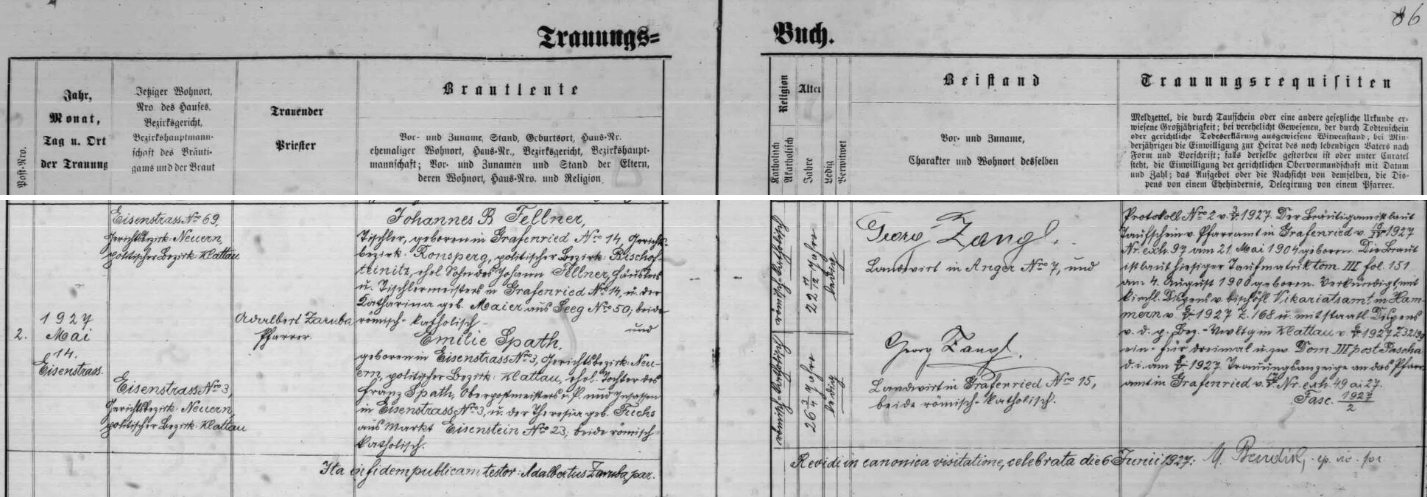 Trauungs=
Buch.
86
Post-Nro.
Jahr,
Monat,
Tag u. Ort
der Trauung
Jetziger Wohnort,
Nro. des Hauses,
Bezirksgericht,
Bezirkshauptmann-
schaft des Bräuti-
gams und der Braut
Trauender
Priester
Brautleute
Vor- und Zuname, Stand, Geburtsort, Haus-Nr.
ehemaliger Wohnort, Haus-Nr., Bezirksgericht, Bezirkshaupt-
mannschaft; Vor- und Zunamen und Stand der Eltern,
deren Wohnort, Haus-Nro. und Religion
Religion
Katholisch
Akatholisch
Alter
Jahre
Ledig
Verwitwet
Beistand
Vor- und Zuname,
Charakter und Wohnort desselben
Trauungsrequisiten
Meldzettel, die durch Taufschein oder eine andere gesetzliche Urkunde er-
wiesene Großjährigkeit; bei verehelicht Gewesenen, der durch Todtenschein
oder gerichtliche Todeserklärung ausgewiesene Witwenstand; bei Min-
derjährigen die Einwilligung zur Heirat des noch lebendigen Vaters nach
Form und Vorschrift; falls derselbe gestorben ist oder unter Curatel
steht, die Einwilligung der gerichtlichen Obervormundschaft mit Datum
und Zahl; das Aufgebot oder die Nachsicht von demselben, die Dis-
pens von einem Ehehindernis, Delegirung von einem Pfarrer.
2.
1927
Mai
14.
Eisenstrass
Eisenstrass No 69,
Gerichtsbezirk Neuern
politischer Bezirk Klattau
Eisenstrass No 3,
Gerichtsbezirk Neuern,
politischer Bezirk Klattau
Adalbert Zaruba
Pfarrer
Johannes B Tellner,
Tischler, geboren in Grafenried No 14, Gerichts-
bezirk Ronsperg, politischer Bezirk Bischof-
teinitz, ehel. Sohn des Johann Tellner, Häuslers
u. Tischlermeisters in Grafenried No 14, u. der
Katharina geb. Maier aus Seeg No 50, beide
römisch-katholisch
und
Emilie Spath,
geboren in Eisenstrass No 3, Gerichtsbezirk Neu-
ern, politischer Bezirk Klattau, ehel. Tochter des
Franz Spath, Oberpostmeisters i. P. und Insassen
in Eisenstrass No 3, u. der Theresia geb. Fuchs
aus Markt Eisenstein No 23; beide römisch-
katholisch.
Ita esse fidem publicam testor: Adalbertus Zaruba, par.
römisch-katholisch
22 11/12 Jahre
ledig
römisch-katholisch
26 9/12 Jahre
ledig
Georg Zangl.
Landwirt in Anger No 7, und
Georg Zangl.
Landwirt in Grafenried No 15,
beide römisch-katholisch.
Protokoll No 2 v. 1927. Der Bräutigam ist laut
Taufschein v. Pfarramt in Grafenried v. 1927
Nr. exh. 37 am 21. Mai 1904 geboren. Die Braut
ist laut hiesiger Taufmatrik tom III fol. 151
am 4. August 1900 geboren. Verkündigt mit
kirchl. Dispens v. bischöfl. Vikariatsamt in Ham-
mern v. 1927 Z. 168 u. mit staatl. Dispens
v. d. p. Bez.-Verwltg in Klattau v. 1927
ein- für dreimal u. zw. Dom. III post Pascha
d. i. am 1927. Trauungsanzeige an das Pfarr-
amt in Grafenried v. Nr. exh. 49 ai 27.
Fasc. 1927/2
Revidi in canonica visitatione, celebrata die 6 Junii 1927.